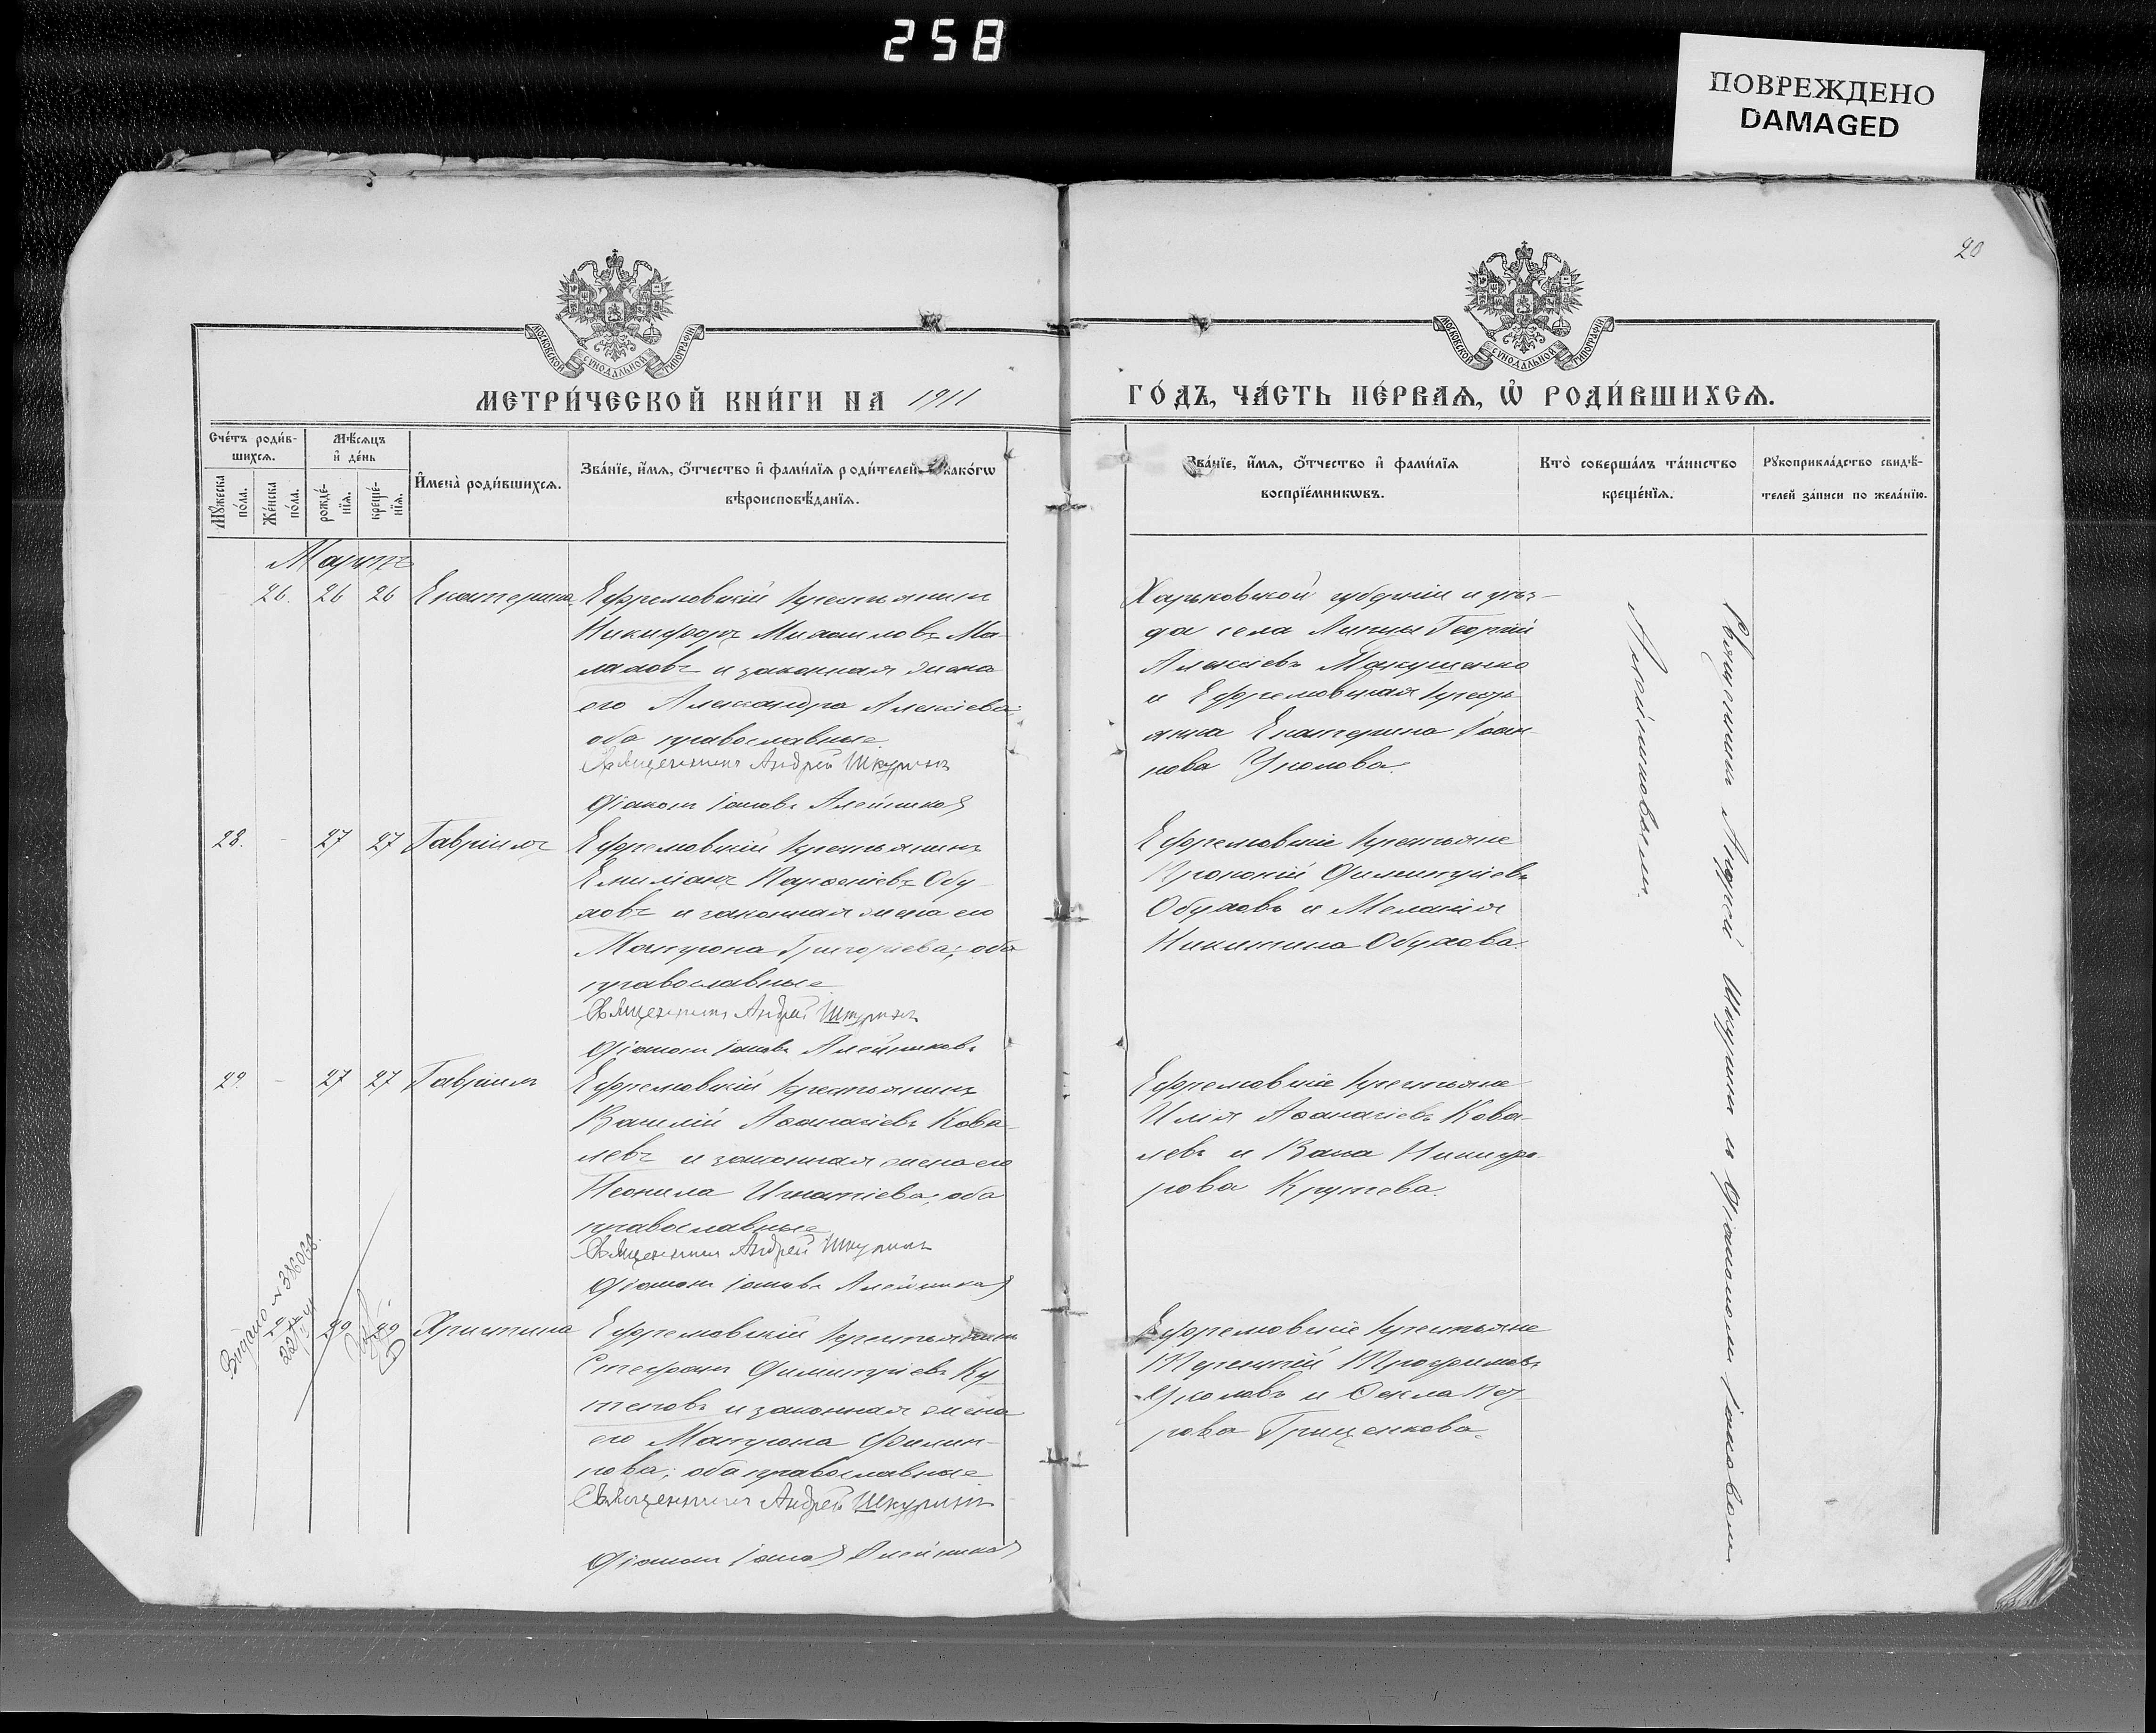 258
ПОВРЕЖДЕНО
DAMAGED
20
МОСКОВСКОЙ СѴНОДАЛЬНОЙ ТИПОГРАФІИ
МОСКОВСКОЙ СѴНОДАЛЬНОЙ ТИПОГРАФІИ
МЕТРИ́ЧЕСКОЙ КНИ́ГИ НА 1911
ГО́ДЪ, ЧА́СТЬ ПЕ́РВАѦ, Ѡ҆ РОДИ́ВШИХСѦ.
Сче́тъ роди́в-
шихсѧ.
Мꙋ́жеска по́ла.
Же́нска по́ла.
Мѣ́сѧцъ
и҆ де́нь
рожде́-
нїѧ.
креще́-
нїѧ.
И҆мена̀ роди́вшихсѧ.
Зва́нїе, и҆́мѧ, ѻ҆́тчество и҆ фами́лїѧ роди́телей и҆ како́гѡ
вѣроисповѣ́данїѧ.
Зва́нїе, и҆́мѧ, ѻ҆́тчество и҆ фами́лїѧ
воспрїе́мникѡвъ.
Кто̀ соверша́лъ та́инство
креще́нїѧ.
Рꙋкоприкла́дство свидѣ́-
телей за́писи по жела́нїю.
Мартъ
26. 26 26 Екатерина
Ефремовскій крестьянинъ
Никифоръ Михаиловъ Ма-
лаховъ и законная жена
его Александра Алексіева;
оба православные.
Священникъ Андрей Шкуринъ
Діаконъ Іаковъ Алейников
Харьковской губерніи и уѣз-
да села Липцы Георгій
Алексіевъ Макушенко
и Ефремовская кресть-
янка Екатерина Іоан-
нова Уколова.
28. - 27 27 Гавріилъ
Ефремовскій крестьянинъ
Емиліанъ Парѳеніевъ Обу-
ховъ и законная жена его
Матрона Григоріева; оба
православные
Священникъ Андрей Шкуринъ
Діаконъ Іаковъ Алейниковъ
Ефремовскіе крестьяне
Прокопій Димитріевъ
Обуховъ и Меланія
Никитина Обухова.
29. - 27 27 Гавріилъ
Ефремовскій крестьянинъ
Василій Аѳанасіевъ Кова-
левъ и законная жена его
Неонила Игнатіева; оба
православные
Священникъ Андрей Шкуринъ
Діаконъ Іаковъ Алейников
Ефремовскіе крестьяне
Илія Аѳанасіевъ Кова-
левъ и Васса Никифо-
рова
Видано №
Христина
Ефремовскій крестьянинъ
Стефанъ Димитріевъ Ку-
теповъ и законная жена
его Матрона Филип-
пова; оба православные
Священникъ Андрей Шкуринъ
Діаконъ Іаков Алейников
Ефремовскіе крестьяне
Терентій Трофимовъ
Уколовъ и Ѳекла Пет-
рова Гриценкова.
Священникъ Андрей Шкуринъ и Діакономъ Іаковомъ
Алейниковымъ.